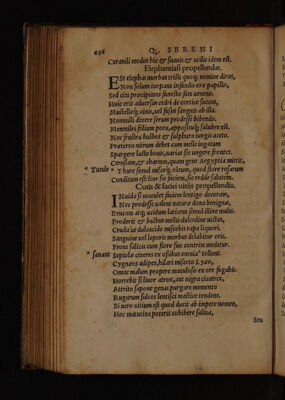 496 Q. SERENI
Curandi modus hic & suauis & utilis idem est.
Elephantiasi propellendæ.
EST elephas morbus tristi quoq; nomine dirus,
Non solum turpans infandis ora papulis,
Sed cito præcipitans funesto fata ueneno.
Huic erit aduersus cedri de cortice succus,
Mustelæq; cinis, uel fusus sanguis ab illa.
Nonnulli dixere serum prodesse bibendo.
Menstrui folium potu, appositúq; salubre est.
Nec frustra bulbus & sulphura iungis aceto.
Præterea nitrum debet cum melle iugatum
Spargere lacte bouis, uarias sic ungere frontes.
Cerusam, & chartam, quam gens Aegyptia mittit,
* Tunde * Thure simul misceq; oleum, quod flore rosarum
Conditum est: hinc sic faciem, sic redde salutem.
Cutis & faciei uitijs propellendis.
INuida si maculet faciem lentigo decoram,
Nec prodesse ualent naturæ dona benignæ,
Erucam atq; acidum laticem simul illine malis.
Proderit & bulbus mellis dulcedine uictus,
Cruda uel dulcacido miscebis rapa liquori.
Sanguine uel leporis morbus delabitur erit.
Frons salicis cum flore suo contrita medetur.
* sanant Sepiolæ cineres ex ossibus omnia* tollunt.
Cygneos adipes, hilari misceto Lyæo,
Omne malum propere maculoso ex ore fugabis.
Horrebit si liuor atrox, aut nigra cicatrix,
Attrito sapone genas purgare memento
Rugarum sulcos lentisci mastice tendent.
Si uero uitium est quod ducit ab impete nomen,
Hoc matutina poteris cohibere saliua,
Seu